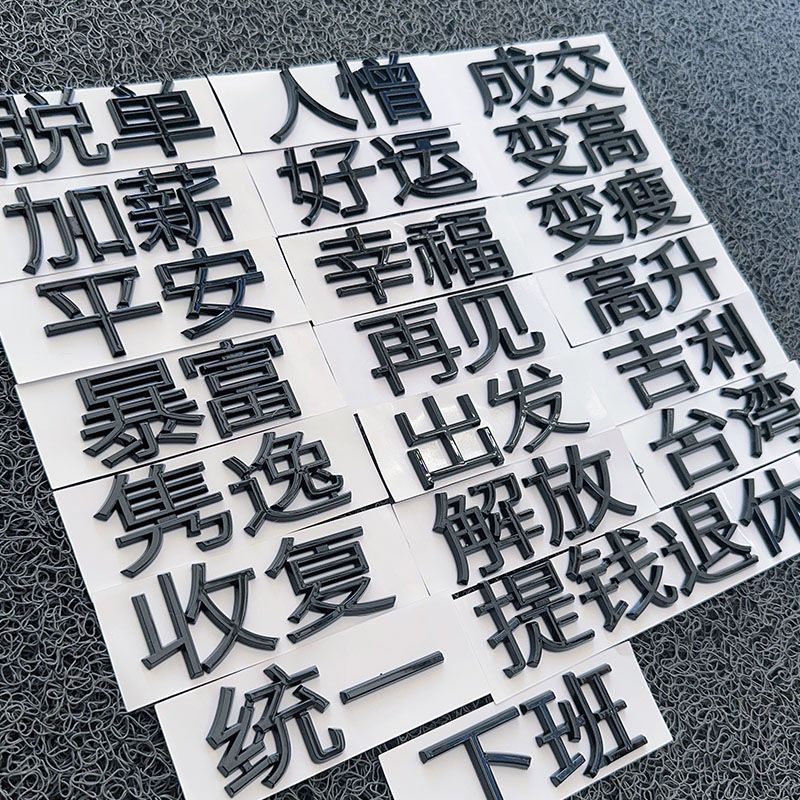 脱单
人憎
成交
加薪
好运
变高
平安
幸福
变瘦
暴富
再见
高升
隽逸
出发
吉利
收复
解放
台湾
统一
提钱退休
下班